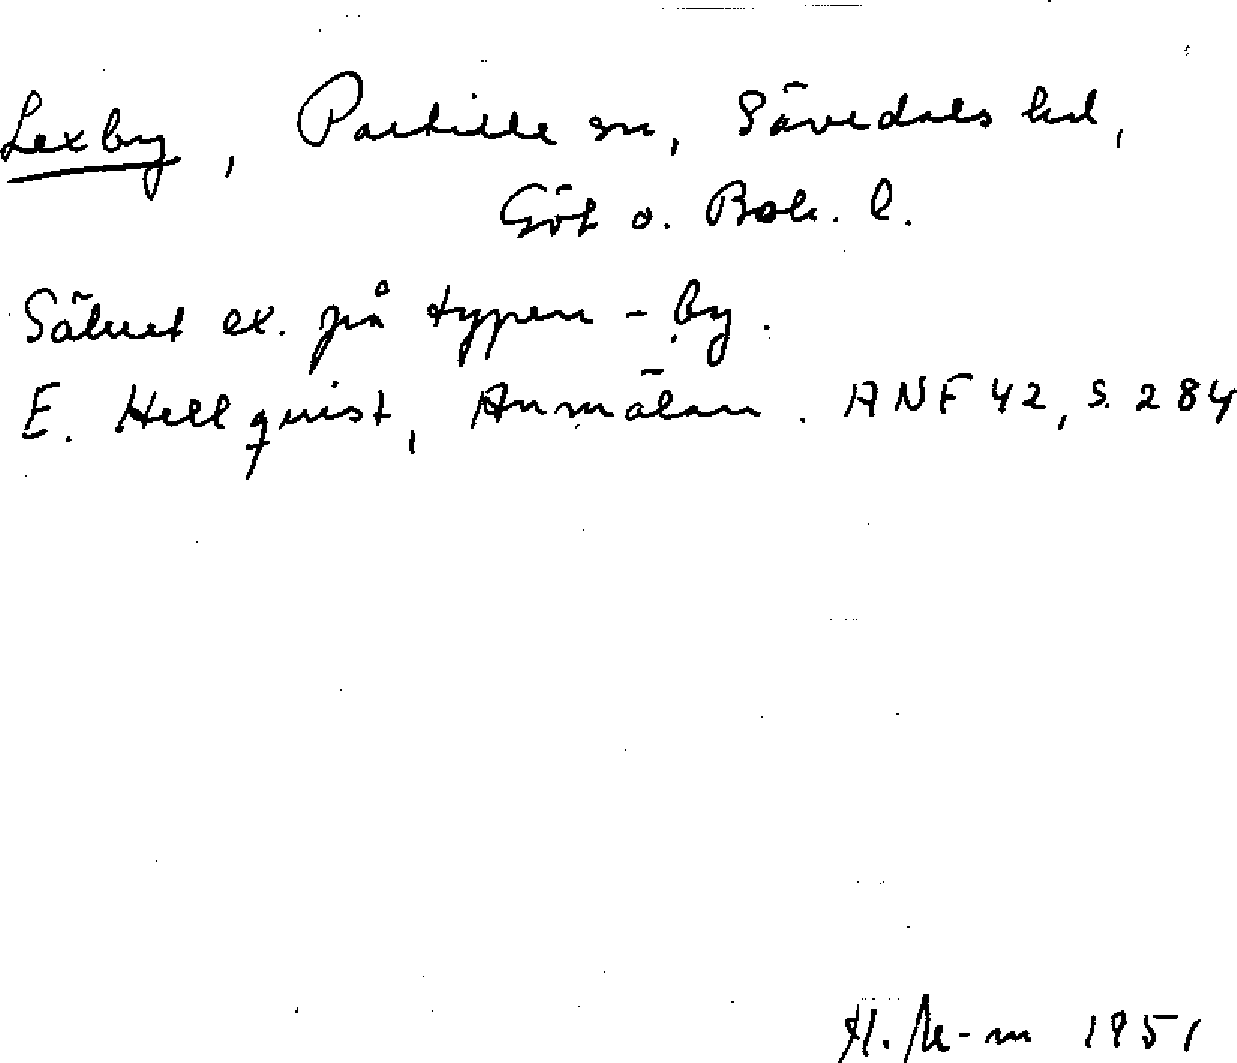 Lexby, Partille sn, Sävedals hd,
Göt o. Boh. l.
Säkert ex. på typen -by.
E. Hellquist, Anmälan. ANF 42, s. 284
1951